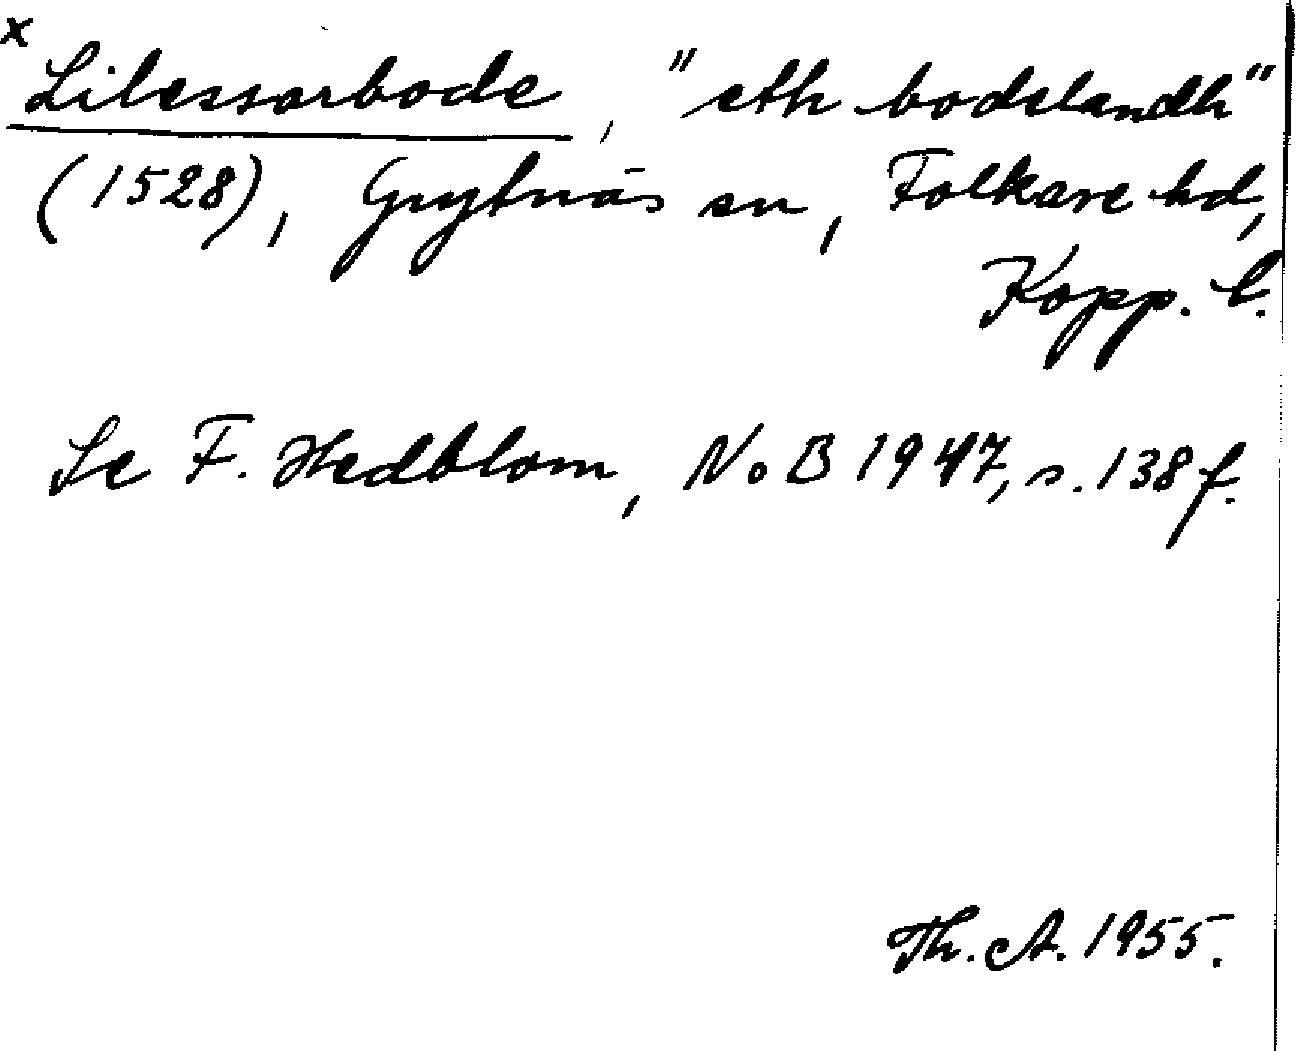 x Lilessarbode, "eth bodslandh"
(1528), Grytnäs sn, Folkare hd,
Kopp. l.
Se F. Hedblom, NoB 1947, s. 138 f.
Th. A. 1955.